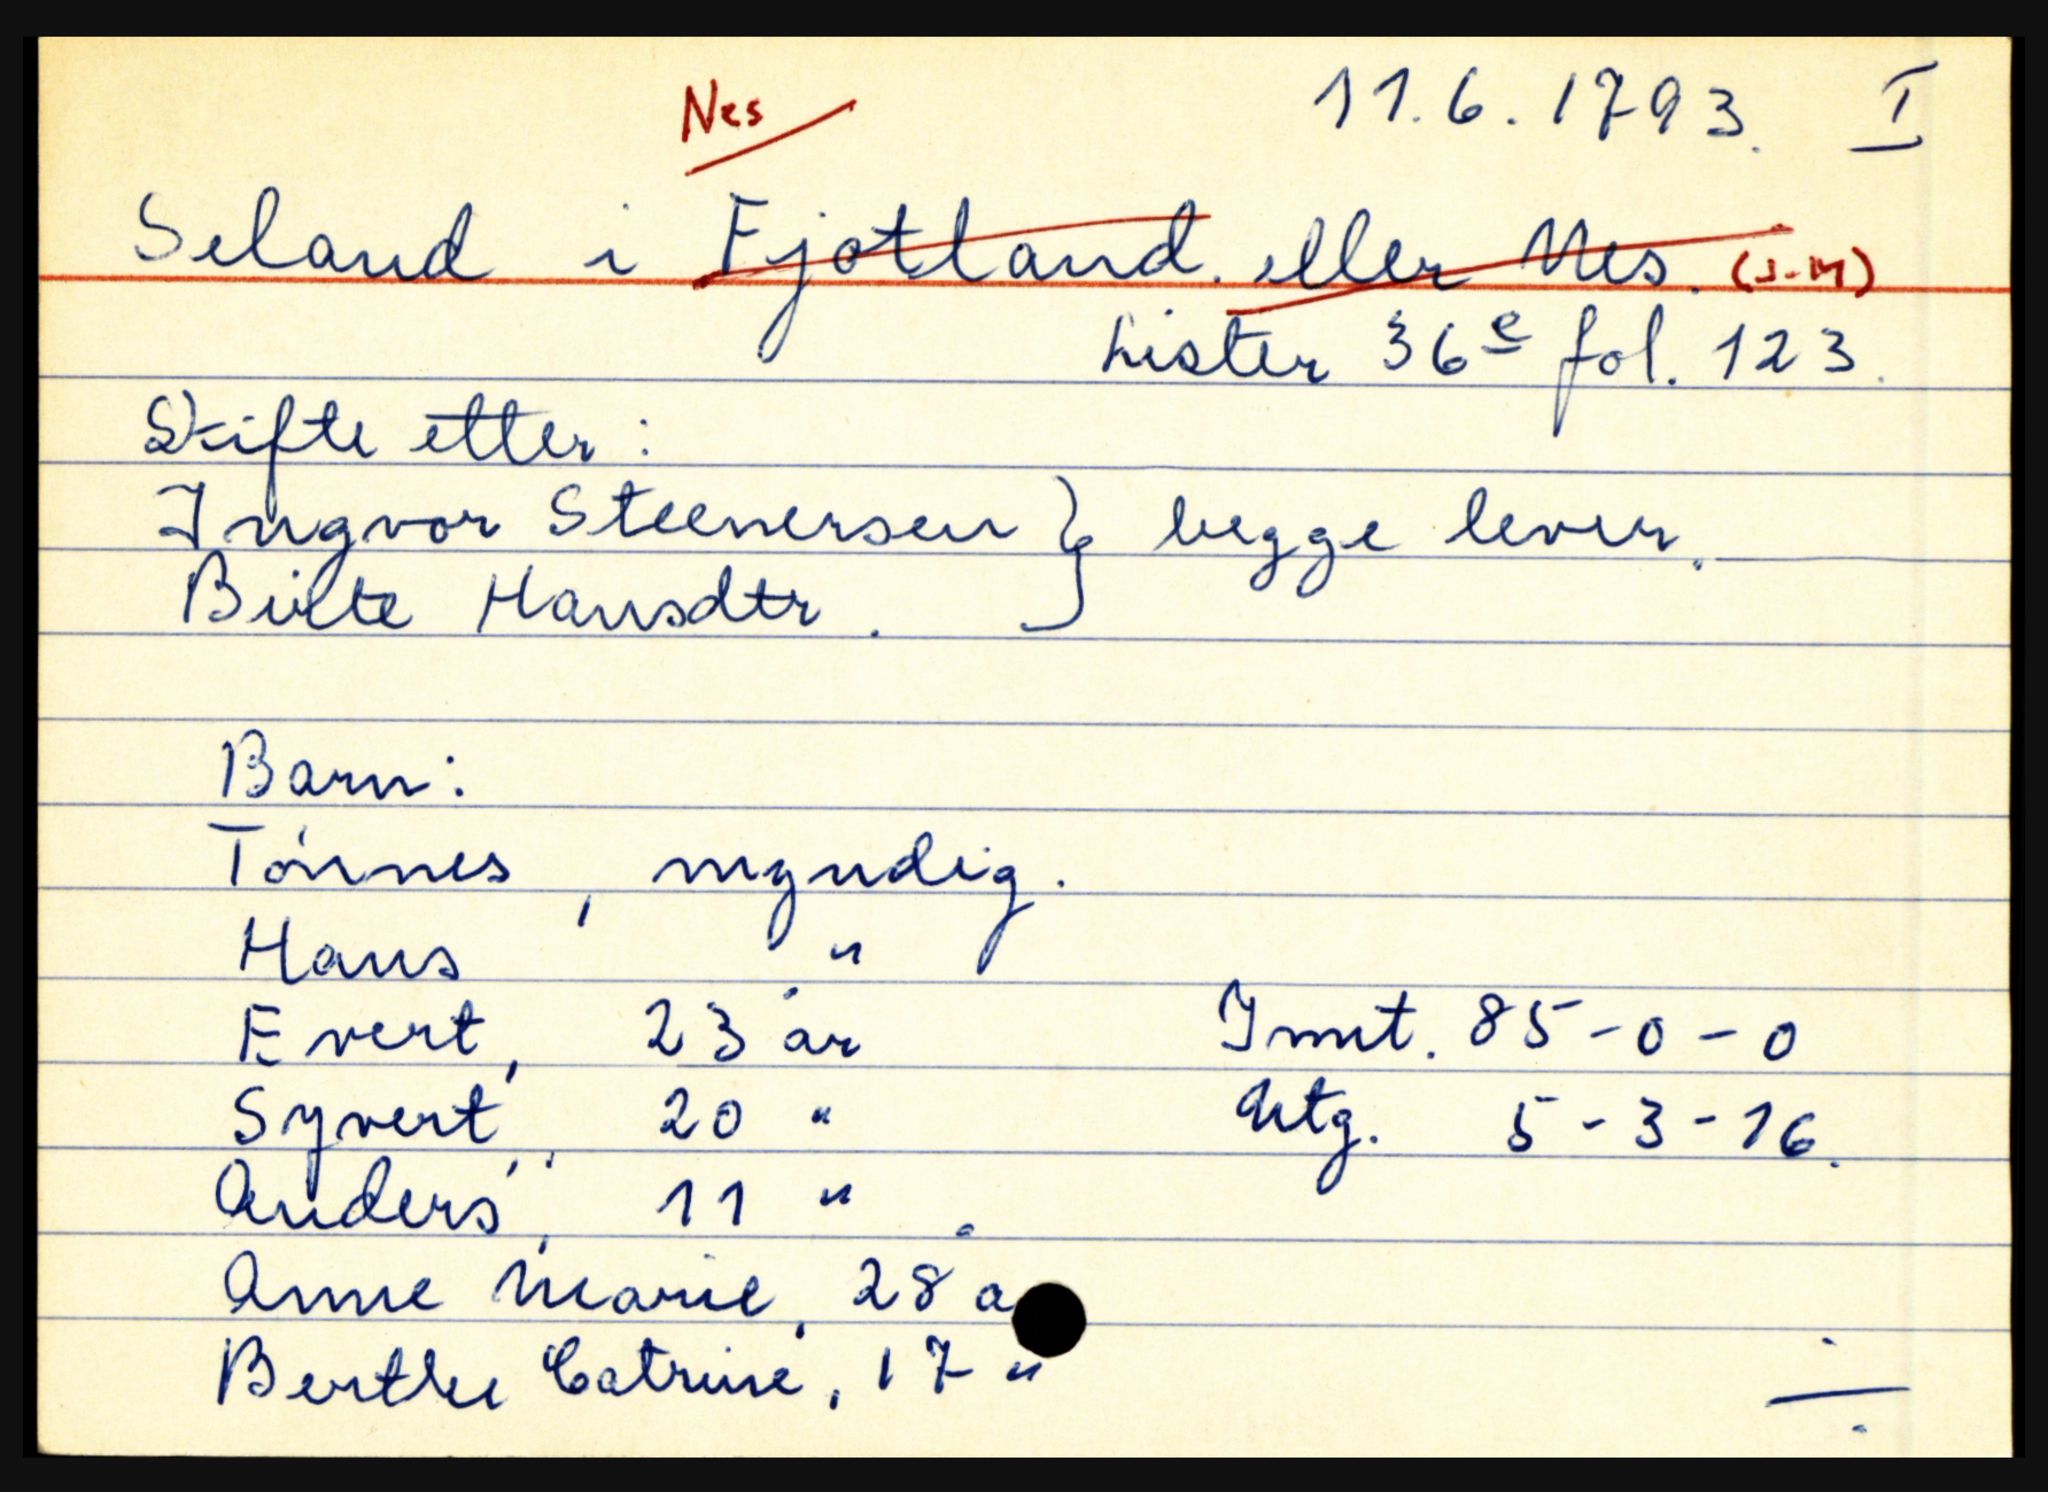 Nes
11.6.1793. I
Seland i Fjotland. eller Nes. (J-M)
Lister 36e fol. 123.
Skifte etter:
Ingvor Steenersen } begge lever.
Birte Hansdtr.
Barn:
Tónnes, myndig.
Hans "
Evert, 23 år Innt. 85-0-0
Syvert, 20 " Utg. 5-3-16.
Anders, 11 "
Anne Marie, 28 å
Berthe Catrine, 17 "